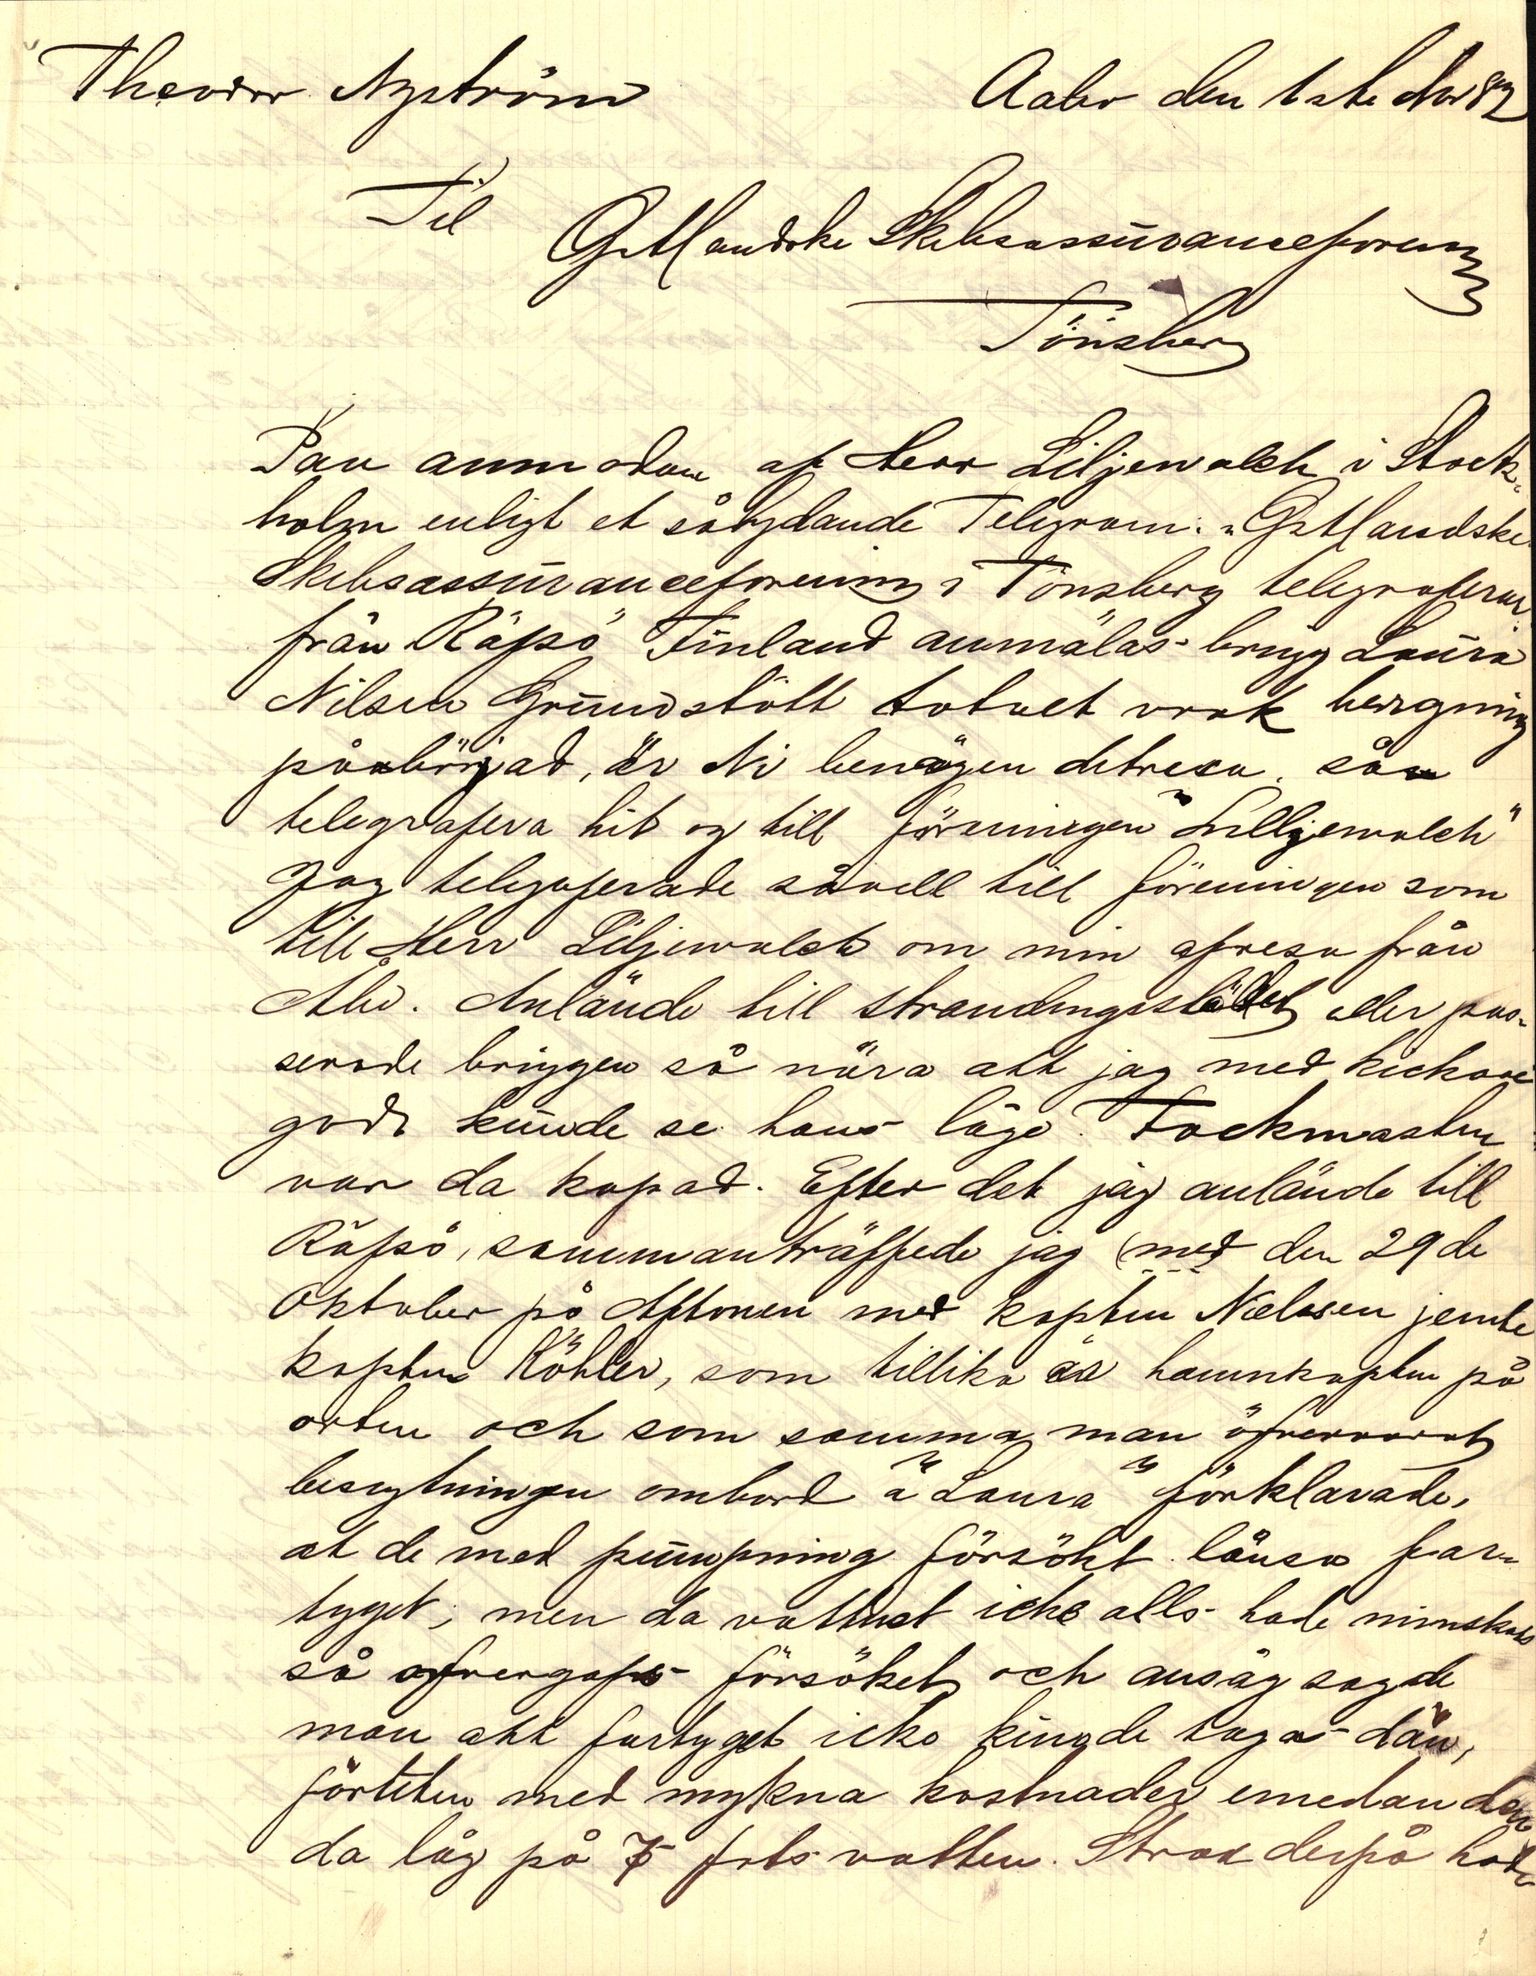 Theodor Nyström Aabo den 1ste Nov 82
Til
Östlandske Skibsassuranceforening
Tönsberg
Paa anmodan af Herr Liljewalch i Stock-
holm enligt et sålydande Telegram. "Östlandske
Skibsassuranceforening i Tönsberg telegraferar
från Räfsö Finland anmälas brigg Laura
Nilsen Grundstött totalt vrak bergning
påabörjad, är Ni benägen ditresa, såa
telegrafera hit og till föreningen "Lilljewalch"
Jag telegraferade såvell till föreningen som
till Herr Liljewalch om min afresa från
Åbo. Anlände till strandingsstället eller pas-
serade briggen så nära att jag med kickare
godt kunde se hans läge. Fockmasten
var da kapad. Efter det jag anlände till
Räfsö, sammanträffede jag (med den 29de
Oktober på Aftonen med kapten Nielsen jemte
kapten Köhler, som tillika är hamnkapten på
orten och som samma man öfvervarat
besigtningen ombord å "Laura" förklarade,
at de med pumpning försökt länsa far-
tyget, men da vattnet icke alls hade minskats
så öfvergafs försöket och ansåg sagde
man att fartyget icke kunde tagas dän,
förutan med mykna kostnader emedan den
da låg på 7 fots vatten. Strax derpå hade